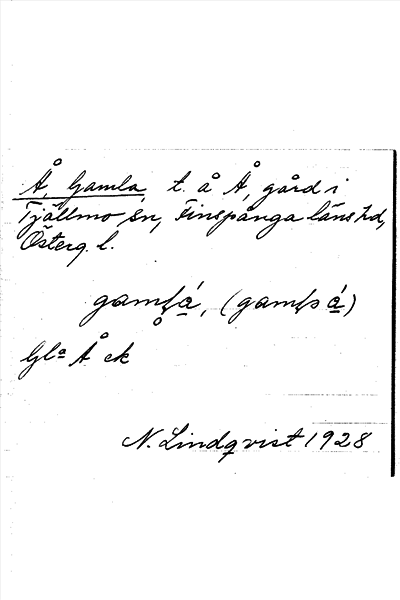 Å, Gamla, t. å Å, gård i
Tjällmo sn, Finspånga läns hd,
Österg. l.
Gla Å ek
N. Lindqvist 1928